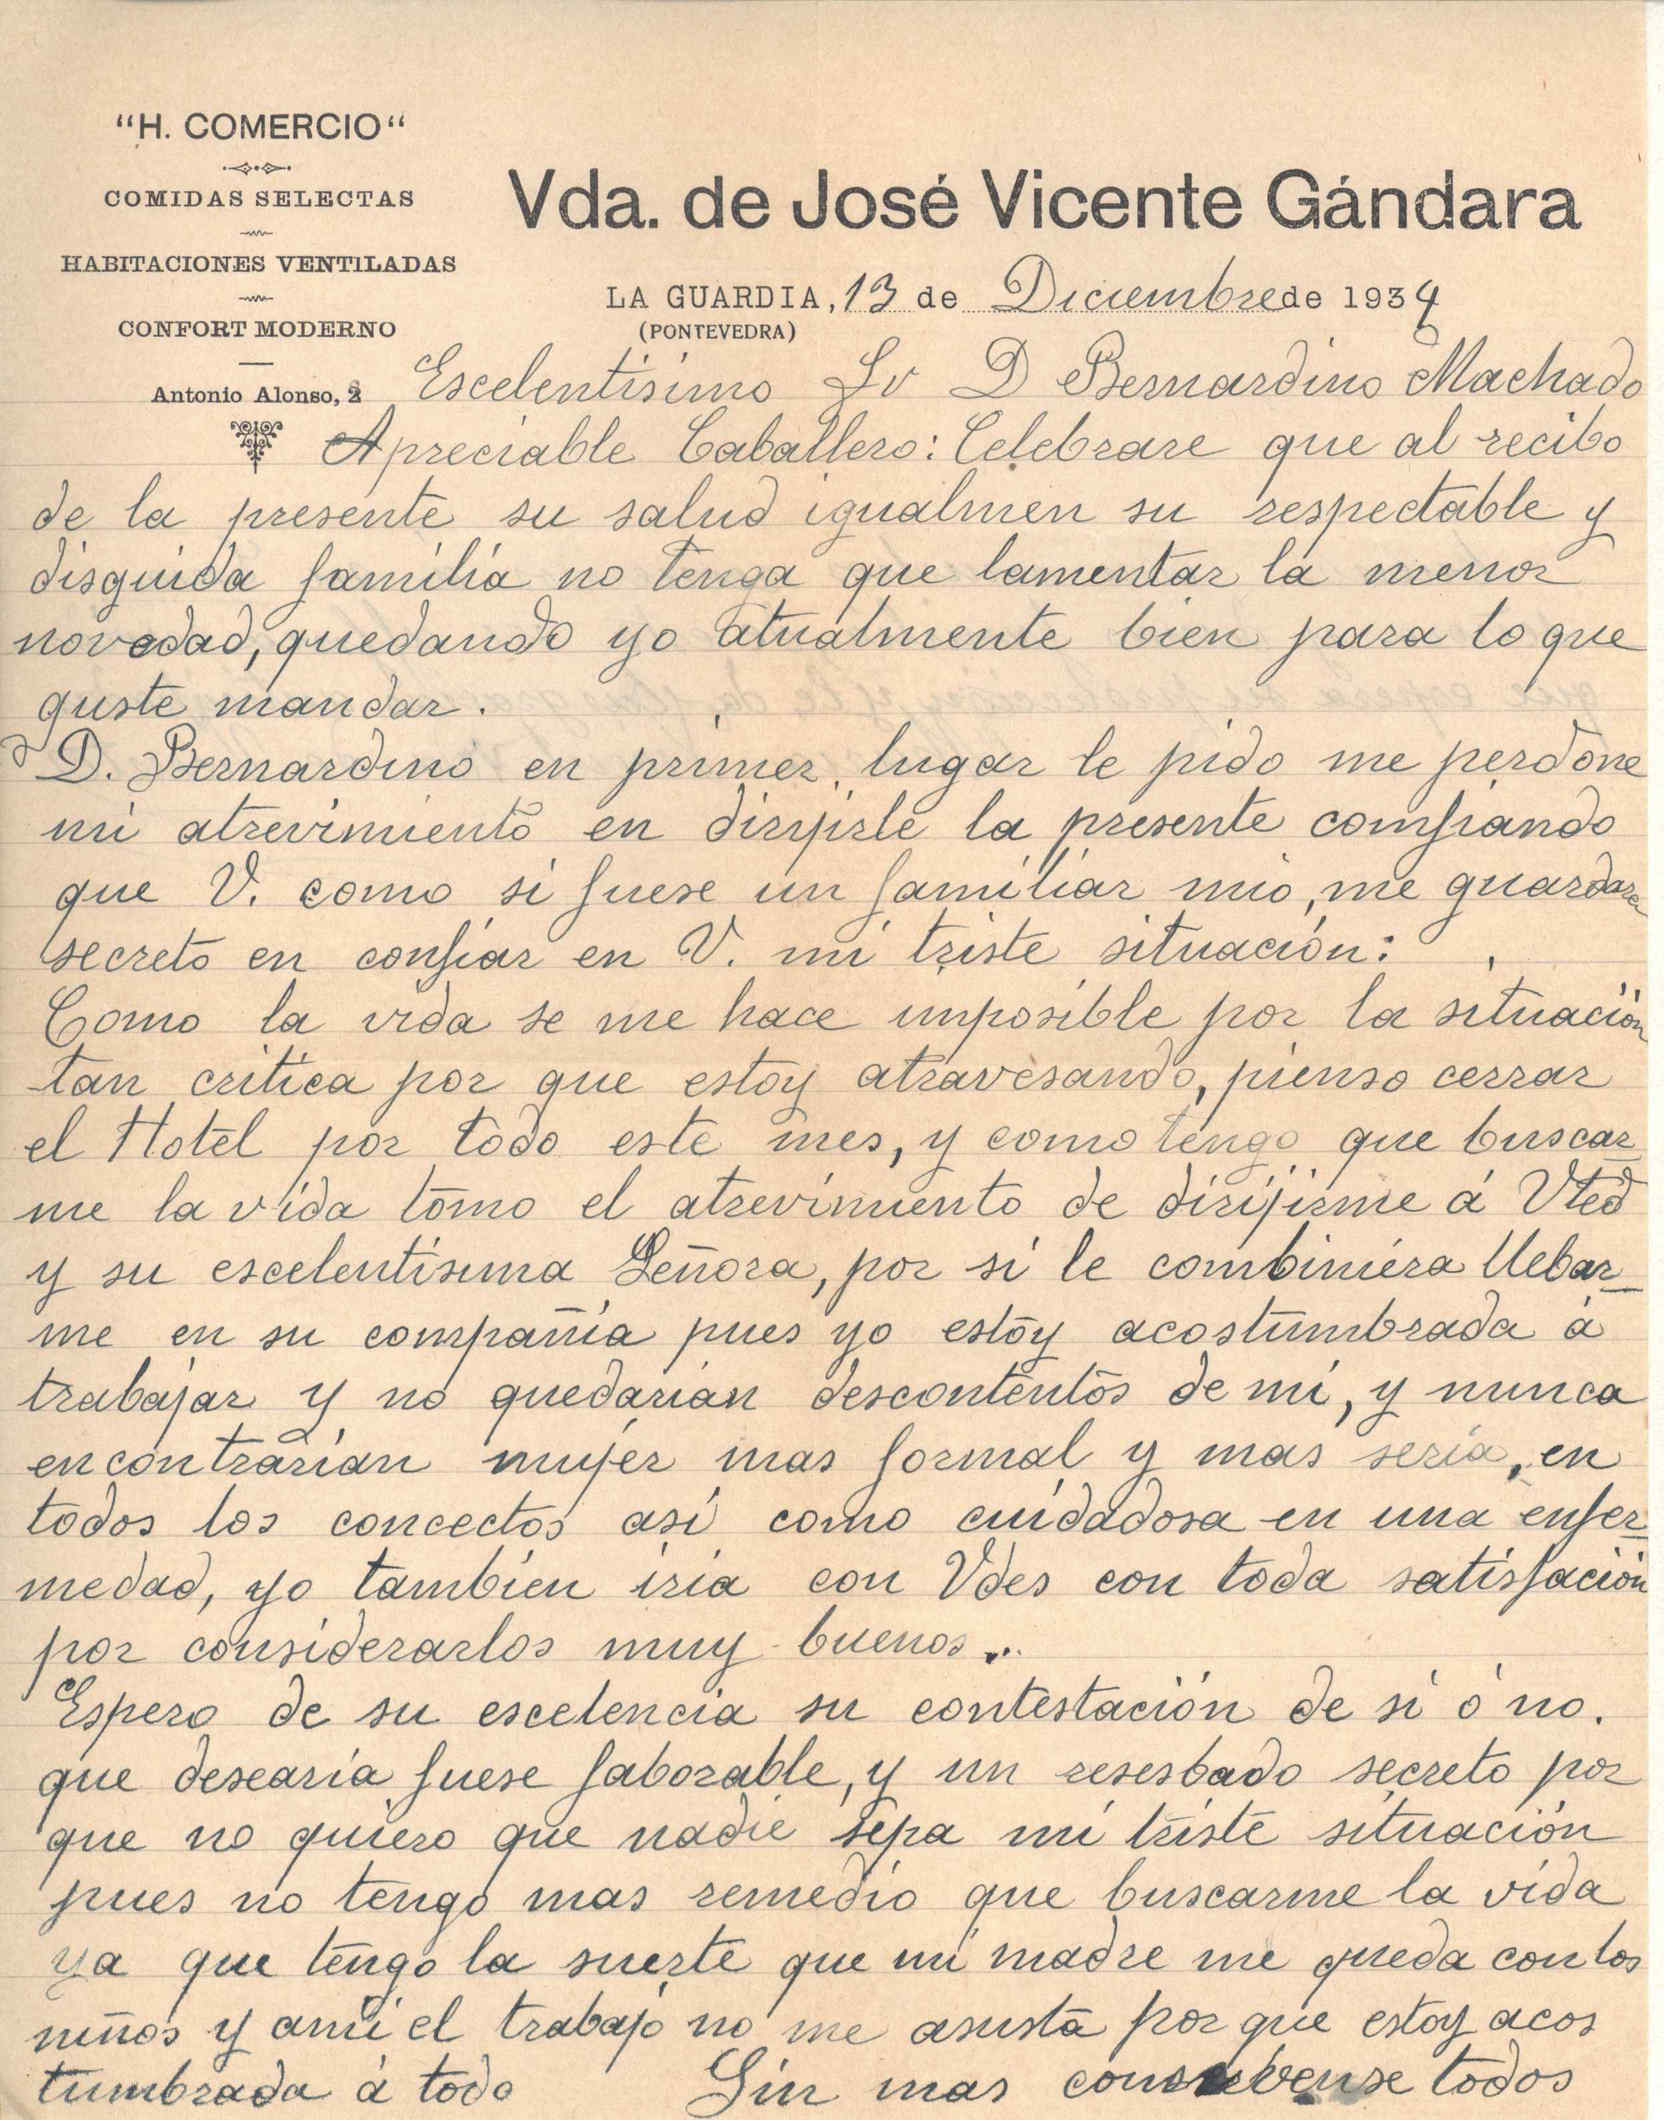 "H. COMERCIO"
COMIDAS SELECTAS
HABITACIONES VENTILADAS
CONFORT MODERNO
Antonio Alonso, 2
Vda. de José Vicente Gándara
LA GUARDIA, 13 de Diciembre de 1934
(PONTEVEDRA)
Escelentisimo Sr D Bernardino Machado
Apreciable Caballero: Celebrare que al recibo
de la presente su salud igualmen su respectable y
disguida familia no tenga que lamentar la menor
novedad, quedando yo atualmente bien para lo que
guste mandar.
D. Bernardino en primer lugar le pido me perdone
mi atrevimiento en dirijirle la presente comfiando
que V. como si fuese un familiar mio, me guardare
secreto en confiar en V. mi triste situación:
Como la vida se me hace imposible por la situación
tan critica por que estoy atravesando, pienso cerrar
el Hotel por todo este mes, y como tengo que buscar
me la vida tomo el atrevimiento de dirijirme á Vted
y su escelentisima Señora, por si le combiniera llebar
me en su compañia pues yo estoy acostumbrada á
trabajar y no quedarian descontentos de mi, y nunca
encontrarian mujer mas formal y mas seria, en
todos los concectos asi como cuidadosa en una enfer
medad, yo tambien iria con Vdes con toda satisfación
por considerarlos muy buenos...
Espero de su escelencia su contestación de si ó no.
que desearia fuese faborable, y un reserbado secreto por
que no quiero que nadie sepa mi triste situación
pues no tengo mas remedio que buscarme la vida
ya que tengo la suerte que mi madre me queda con los
niños y ami el trabajo no me asusta por que estoy acos
tumbrada á todo Sin mas todos